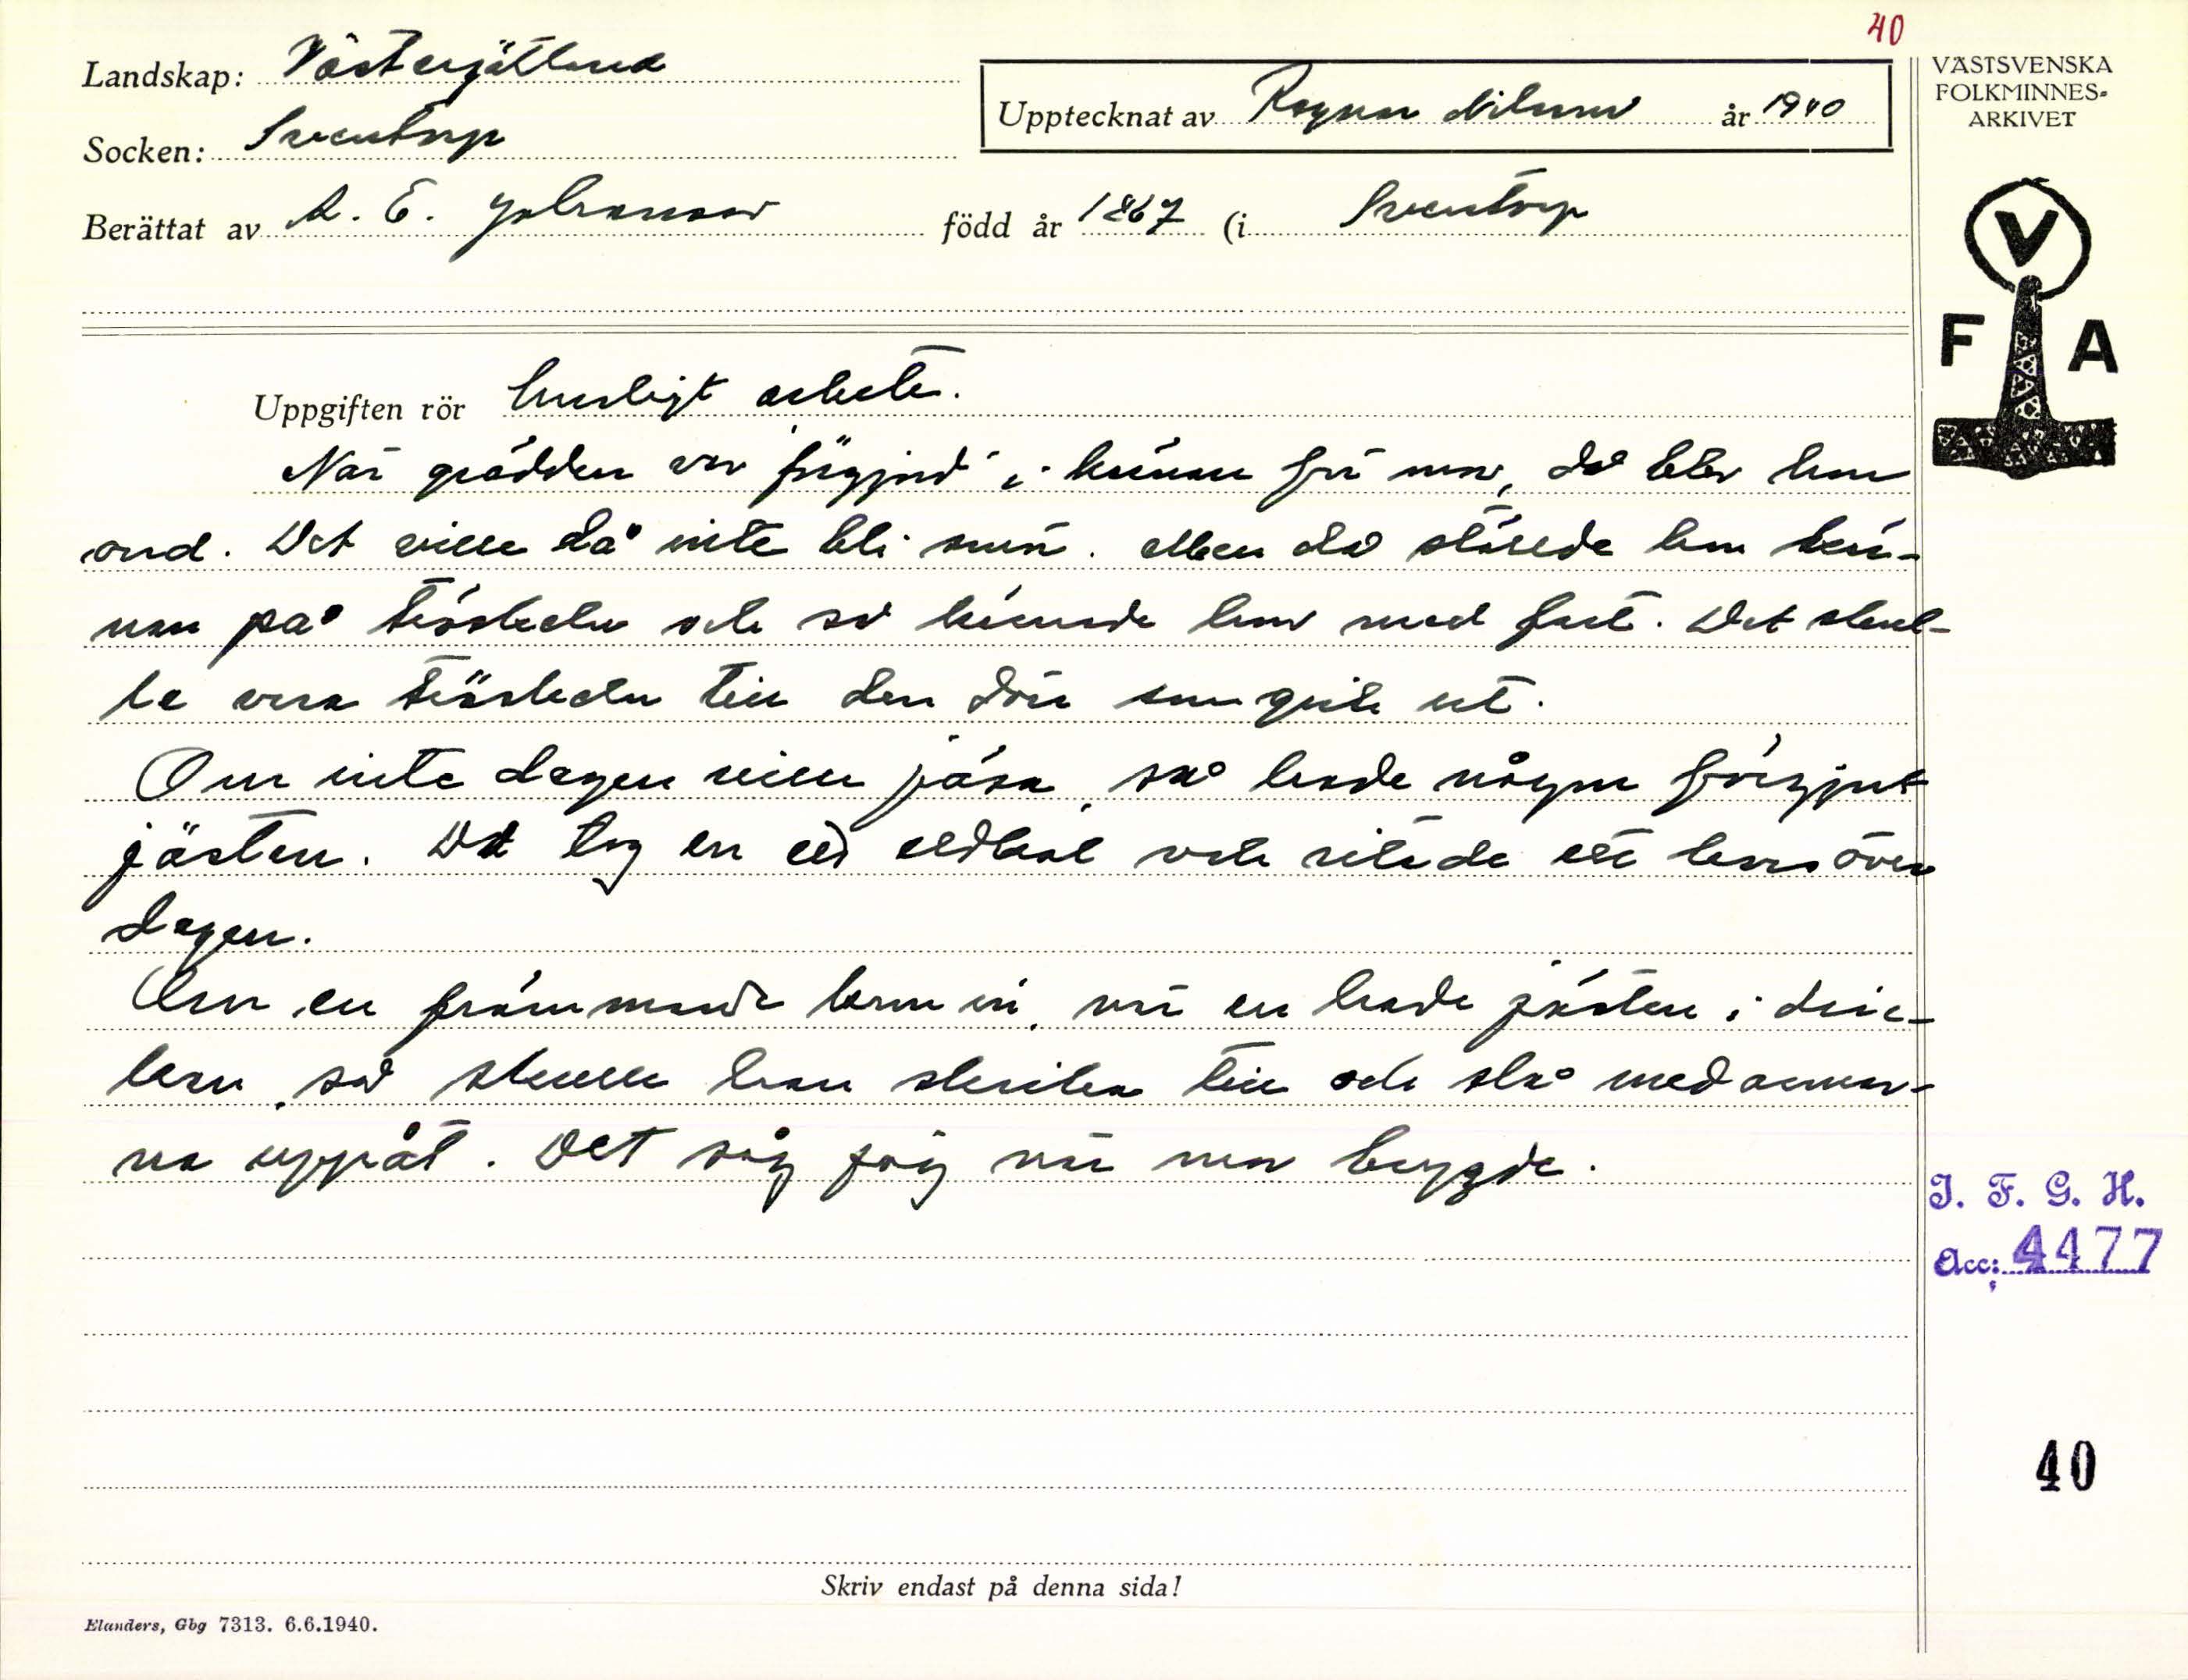 40
Landskap: Västergötland
Socken: Sventorp
Upptecknat av Ragnar Nilsson år 1940
Berättat av A. E. Johansson född år 1867 (i Sventorp
VÄSTSVENSKA
FOLKMINNES-
ARKIVET
V
F A
Uppgiften rör husligt arbete.
När grädden var "förgjord" i kärnan för mor, då blev hon
ond. Det ville då inte bli smör. Men då ställde hon kär-
nan på tröskeln och så kärnade hon med fart. Det skul-
le vara tröskeln till den dörr som gick ut.
Om inte degen ville jäsa, så hade någon förgjort
jästen. Då tog en ett eldkol och ritade ett kors över
degen.
Om en främmande kom in, när en hade jästen i dric-
kan, så skulle han skrika till och slå med armar-
na uppåt. Det såg jag när mor bryggde.
I. F. G. H.
Acc: 4477
40
Skriv endast på denna sida!
Elanders, Gbg 7313. 6.6.1940.